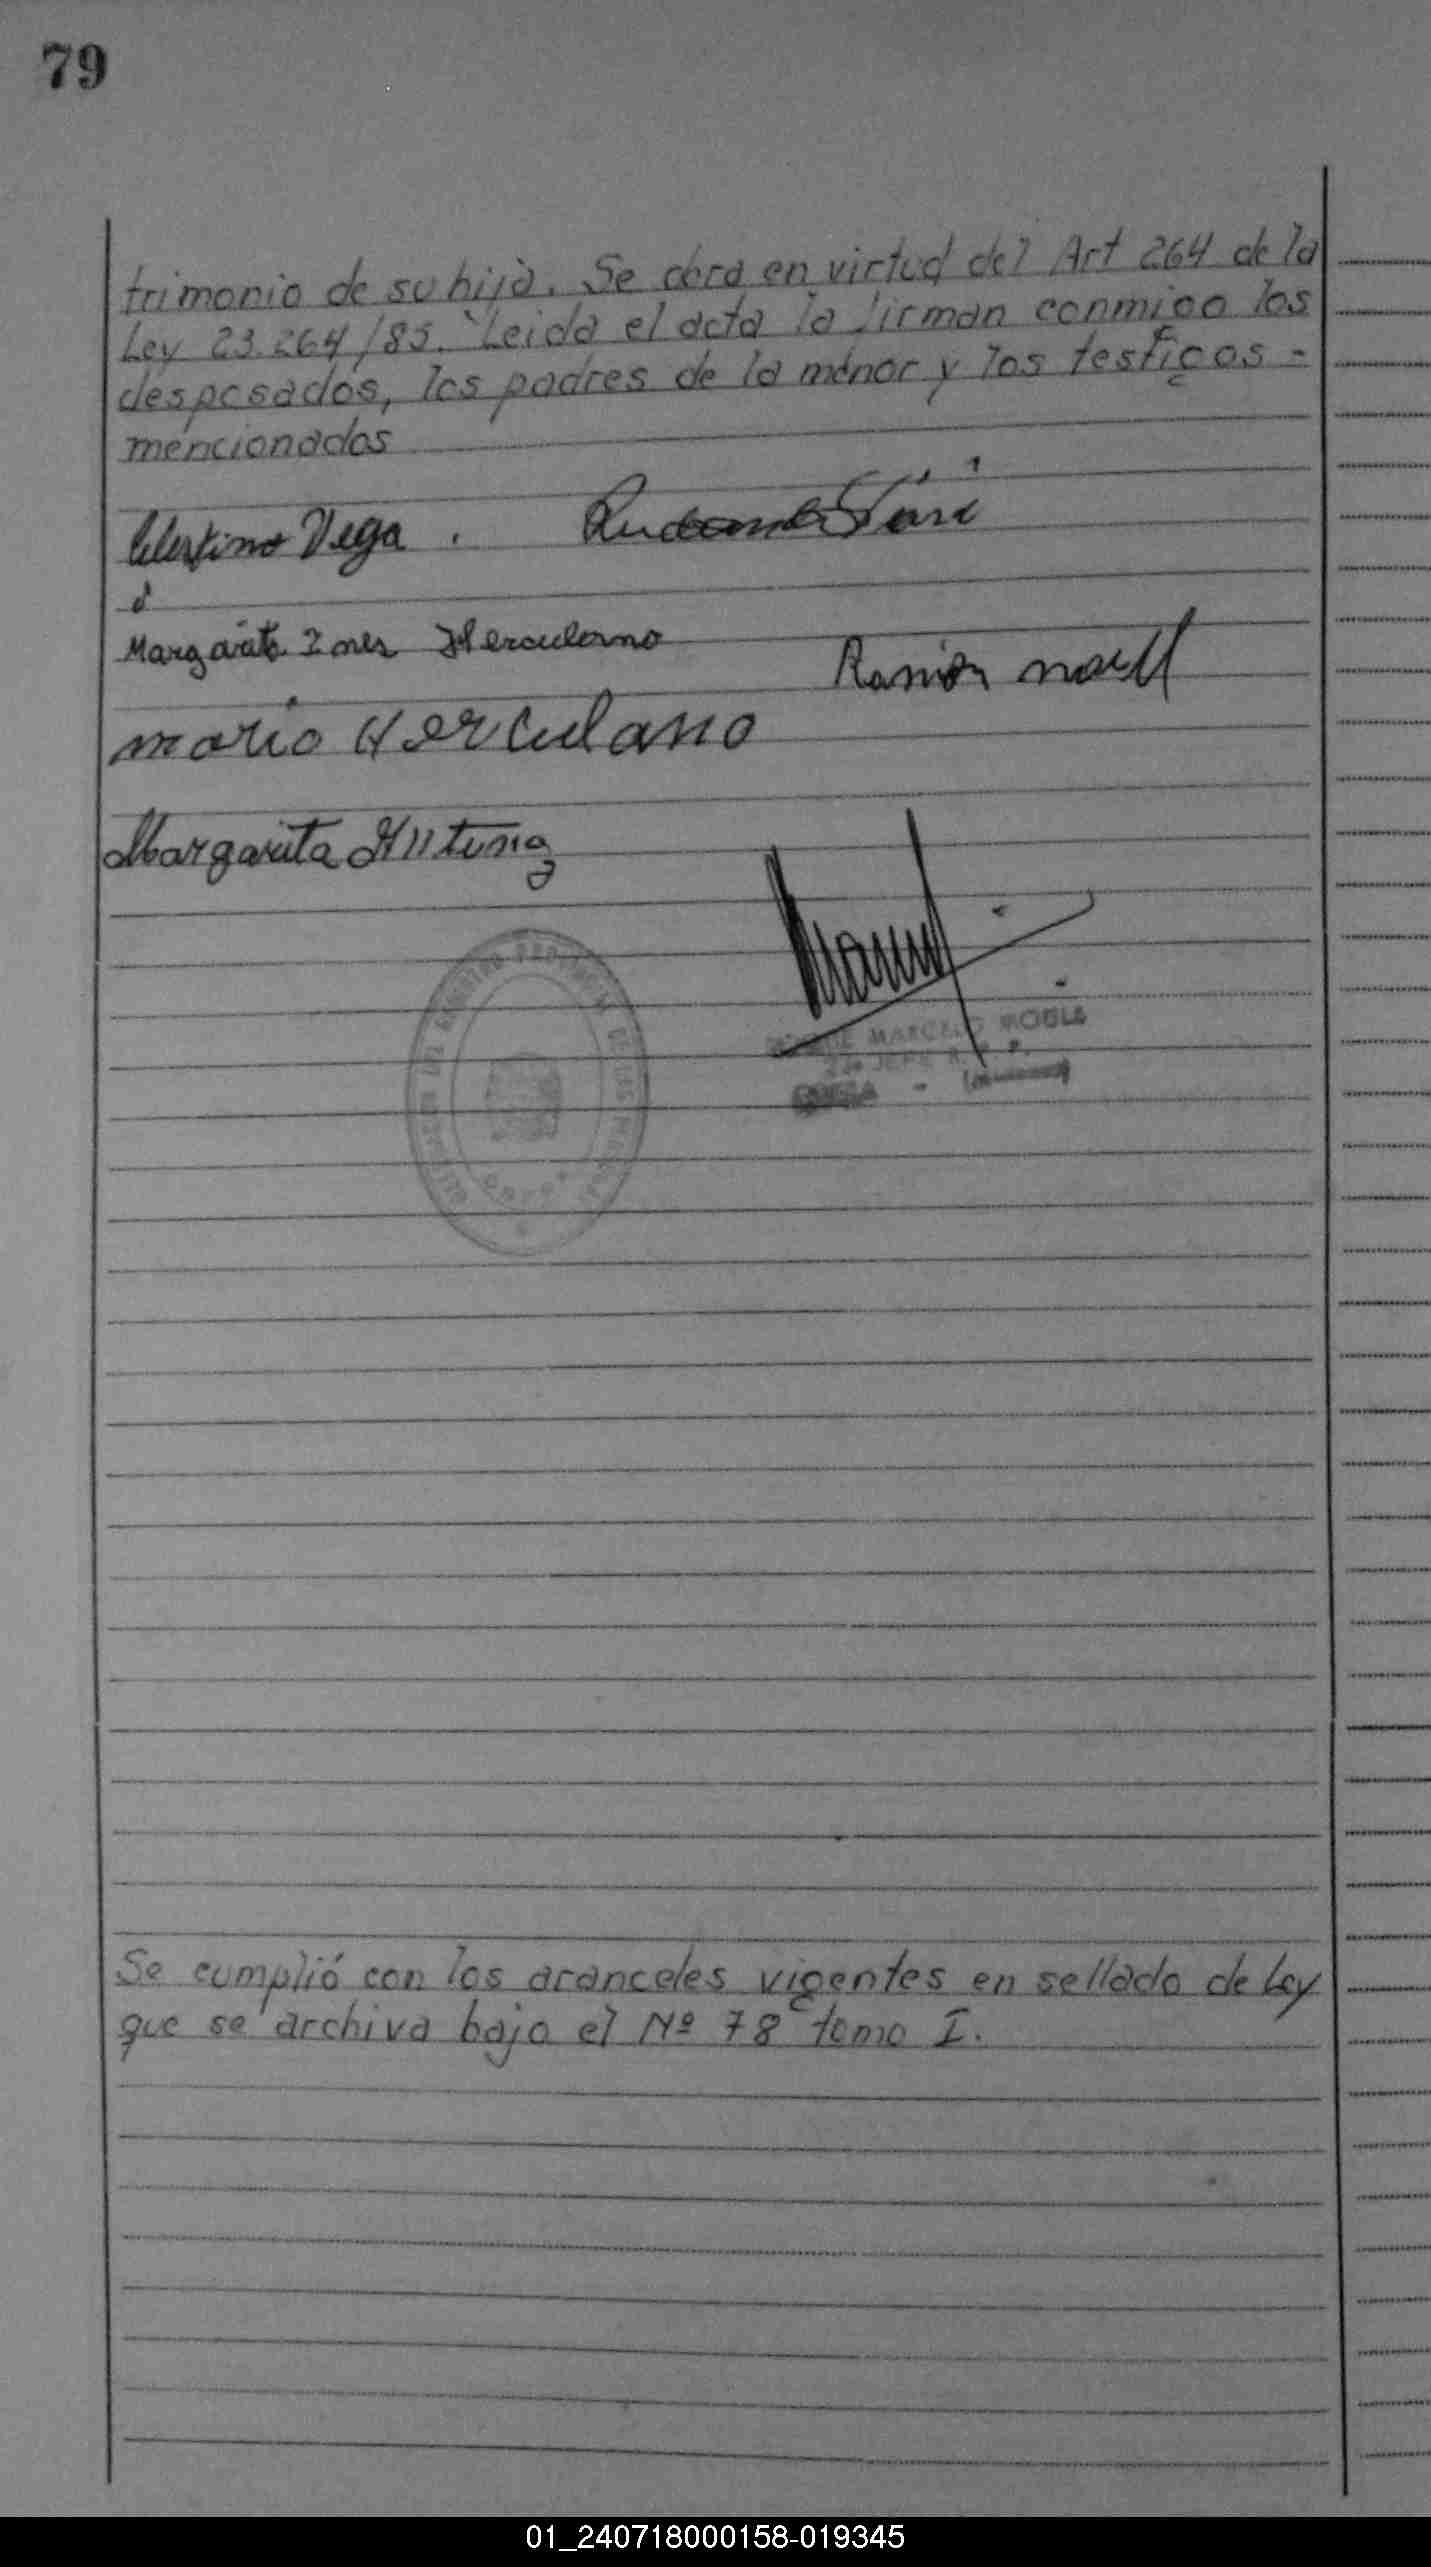 79
trimonio de su hija. Se dera en virtud del Art 264 de la
Ley 23.264/85. Leida el acta la firman conmigo los
desposados, los padres de la menor y los testigos =
mencionados
Celestino Vega .
Margarita Ines Herculano
Ramón
mario Herculano
Margarita
MARCELO ROBLE
JEFE
Se cumplió con los aranceles vigentes en sellado de Ley
que se archiva bajo el Nº 78 tomo I.
01_240718000158-019345